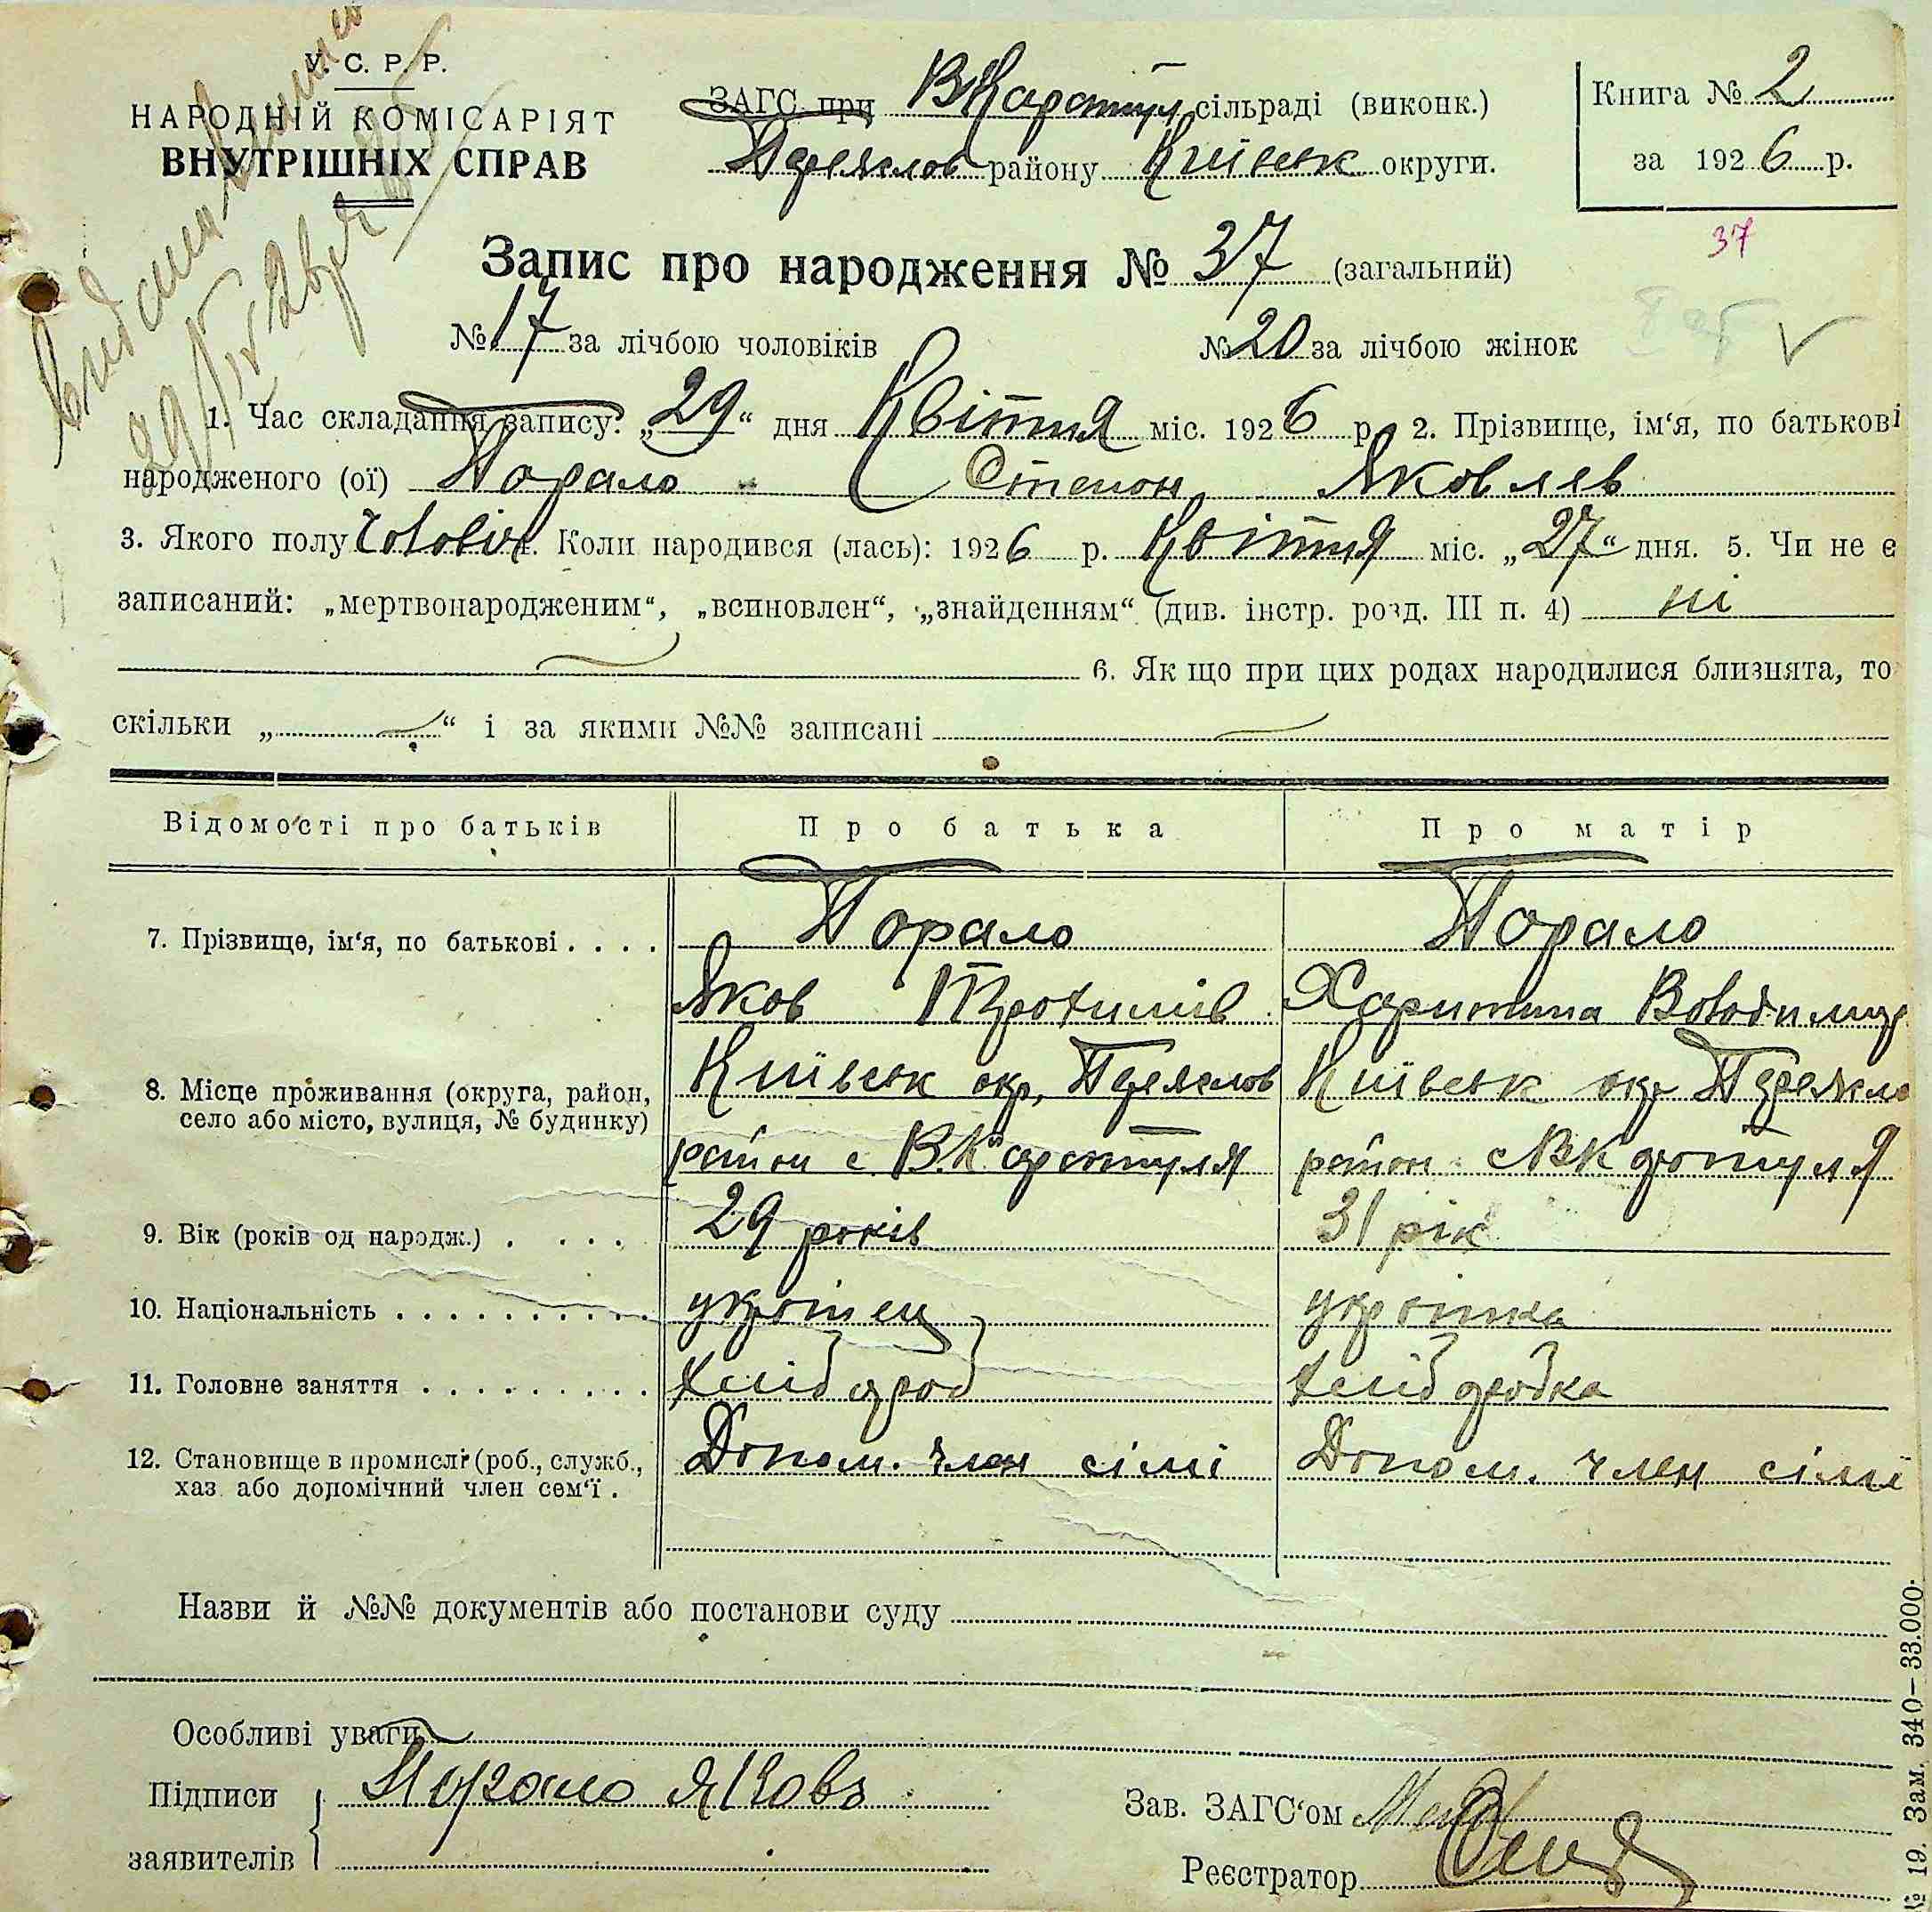 У. С. Р. Р.
НАРОДНІЙ КОМІСАРІЯТ
ВНУТРІШНІХ СПРАВ
ЗАГС при ВКаратул сільраді (виконк.)
Переяслов району Київськ округи.
Книга № 2
за 1926 р.
37
Запис про народження № 37 (загальний)
№ 17 за лічбою чоловіків № 20 за лічбою жінок
1. Час складання запису: „29“ дня Квітня міс. 1926 р. 2. Прізвище, ім‘я, по батькові
народженого (ої) Порало Степон Яковлев
3. Якого полу чоловіч. Коли народився (лась): 1926 р. Квітня міс. „27“ дня. 5. Чи не є
записаний: „мертвонародженим“, „всиновлен“, „знайденням“ (див. інстр. розд. III п. 4) ні
6. Як що при цих родах народилися близнята, то
скільки „ “ і за якими №№ записані
Відомості про батьків Про батька Про матір
7. Прізвище, ім‘я, по батькові . . . . Порало Порало
Яков Трохимів Харитина Володимир
8. Місце проживання (округа, район, село або місто, вулиця, № будинку) Київськ окр, Переяслов Київськ окр Переясло
район с В.Каратуля район с ВКаратуля
9. Вік (років од народж.) . . . . 29 років 31 рік
10. Національність . . . . . . . . . . українец українка
11. Головне заняття . . . . . . . . . . хлібороб хліборобка
12. Становище в промислі (роб., служб., хаз. або допомічний член сем‘ї . Допом. член сімї Допом. член сімї
Назви й №№ документів або постанови суду
Особливі уваги
Підписи заявителів Порало Яковъ
Зав. ЗАГС‘ом
Реєстратор
№ 19. Зам. 340—33.000.